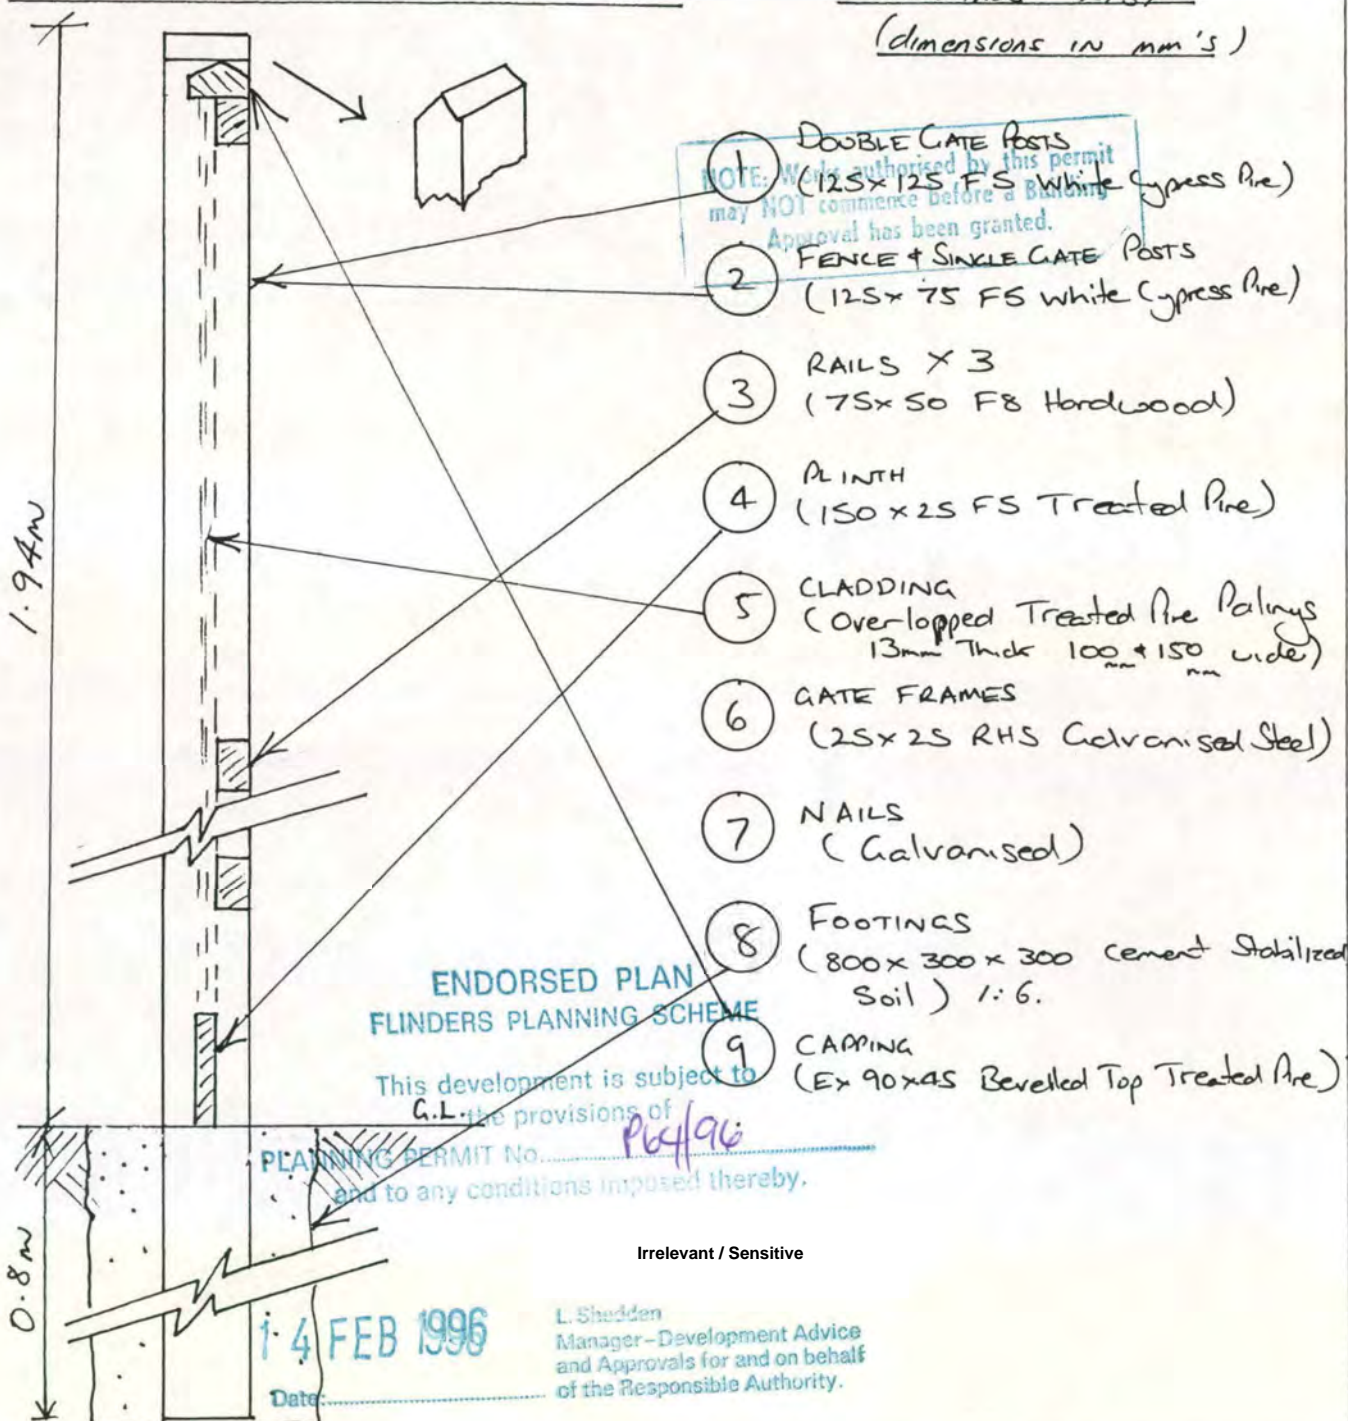 (dimensions in mm's)
1 DOUBLE GATE POSTS
(125x125 F5 White Cypress Pine)
NOTE: Works authorised by this permit
may NOT commence before a Building
Approval has been granted.
2 FENCE & SINGLE GATE POSTS
(125x 75 F5 White Cypress Pine)
3 RAILS X 3
(75x50 F8 Hardwood)
4 PLINTH
(150x25 F5 Treated Pine)
5 CLADDING
(Overlapped Treated Pine Palings
13mm Thick 100mm & 150mm wide)
6 GATE FRAMES
(25x25 RHS Galvanised Steel)
7 NAILS
(Galvanised)
8 FOOTINGS
(800x300x300 Cement Stabilized
Soil) 1:6.
9 CAPPING
(Ex 90x45 Bevelled Top Treated Pine)
1.94m
0.8m
G.L.
ENDORSED PLAN
FLINDERS PLANNING SCHEME
This development is subject to
the provisions of
PLANNING PERMIT No. P64/96
and to any conditions imposed thereby.
Irrelevant / Sensitive
14 FEB 1996
Date:
L. Shedden
Manager-Development Advice
and Approvals for and on behalf
of the Responsible Authority.